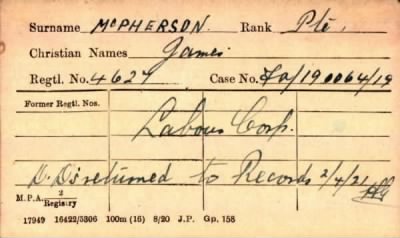 Surname McPHERSON. Rank Pte.
Christian Names James
Regtl. No. 4627 Case No. /190064/19
Former Regtl. Nos.
Labour Corp.
D. Ds returned to Records 2/4/21
M.P.A. 2 Registry
17949 16422/5306 100m (16) 8/20 J.P. Gp. 158